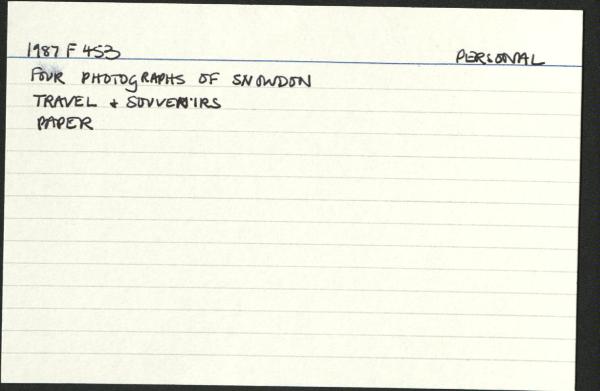 1987 F 453 PERSONAL
FOUR PHOTOGRAPHS OF SNOWDON
TRAVEL + SOUVENIRS
PAPER